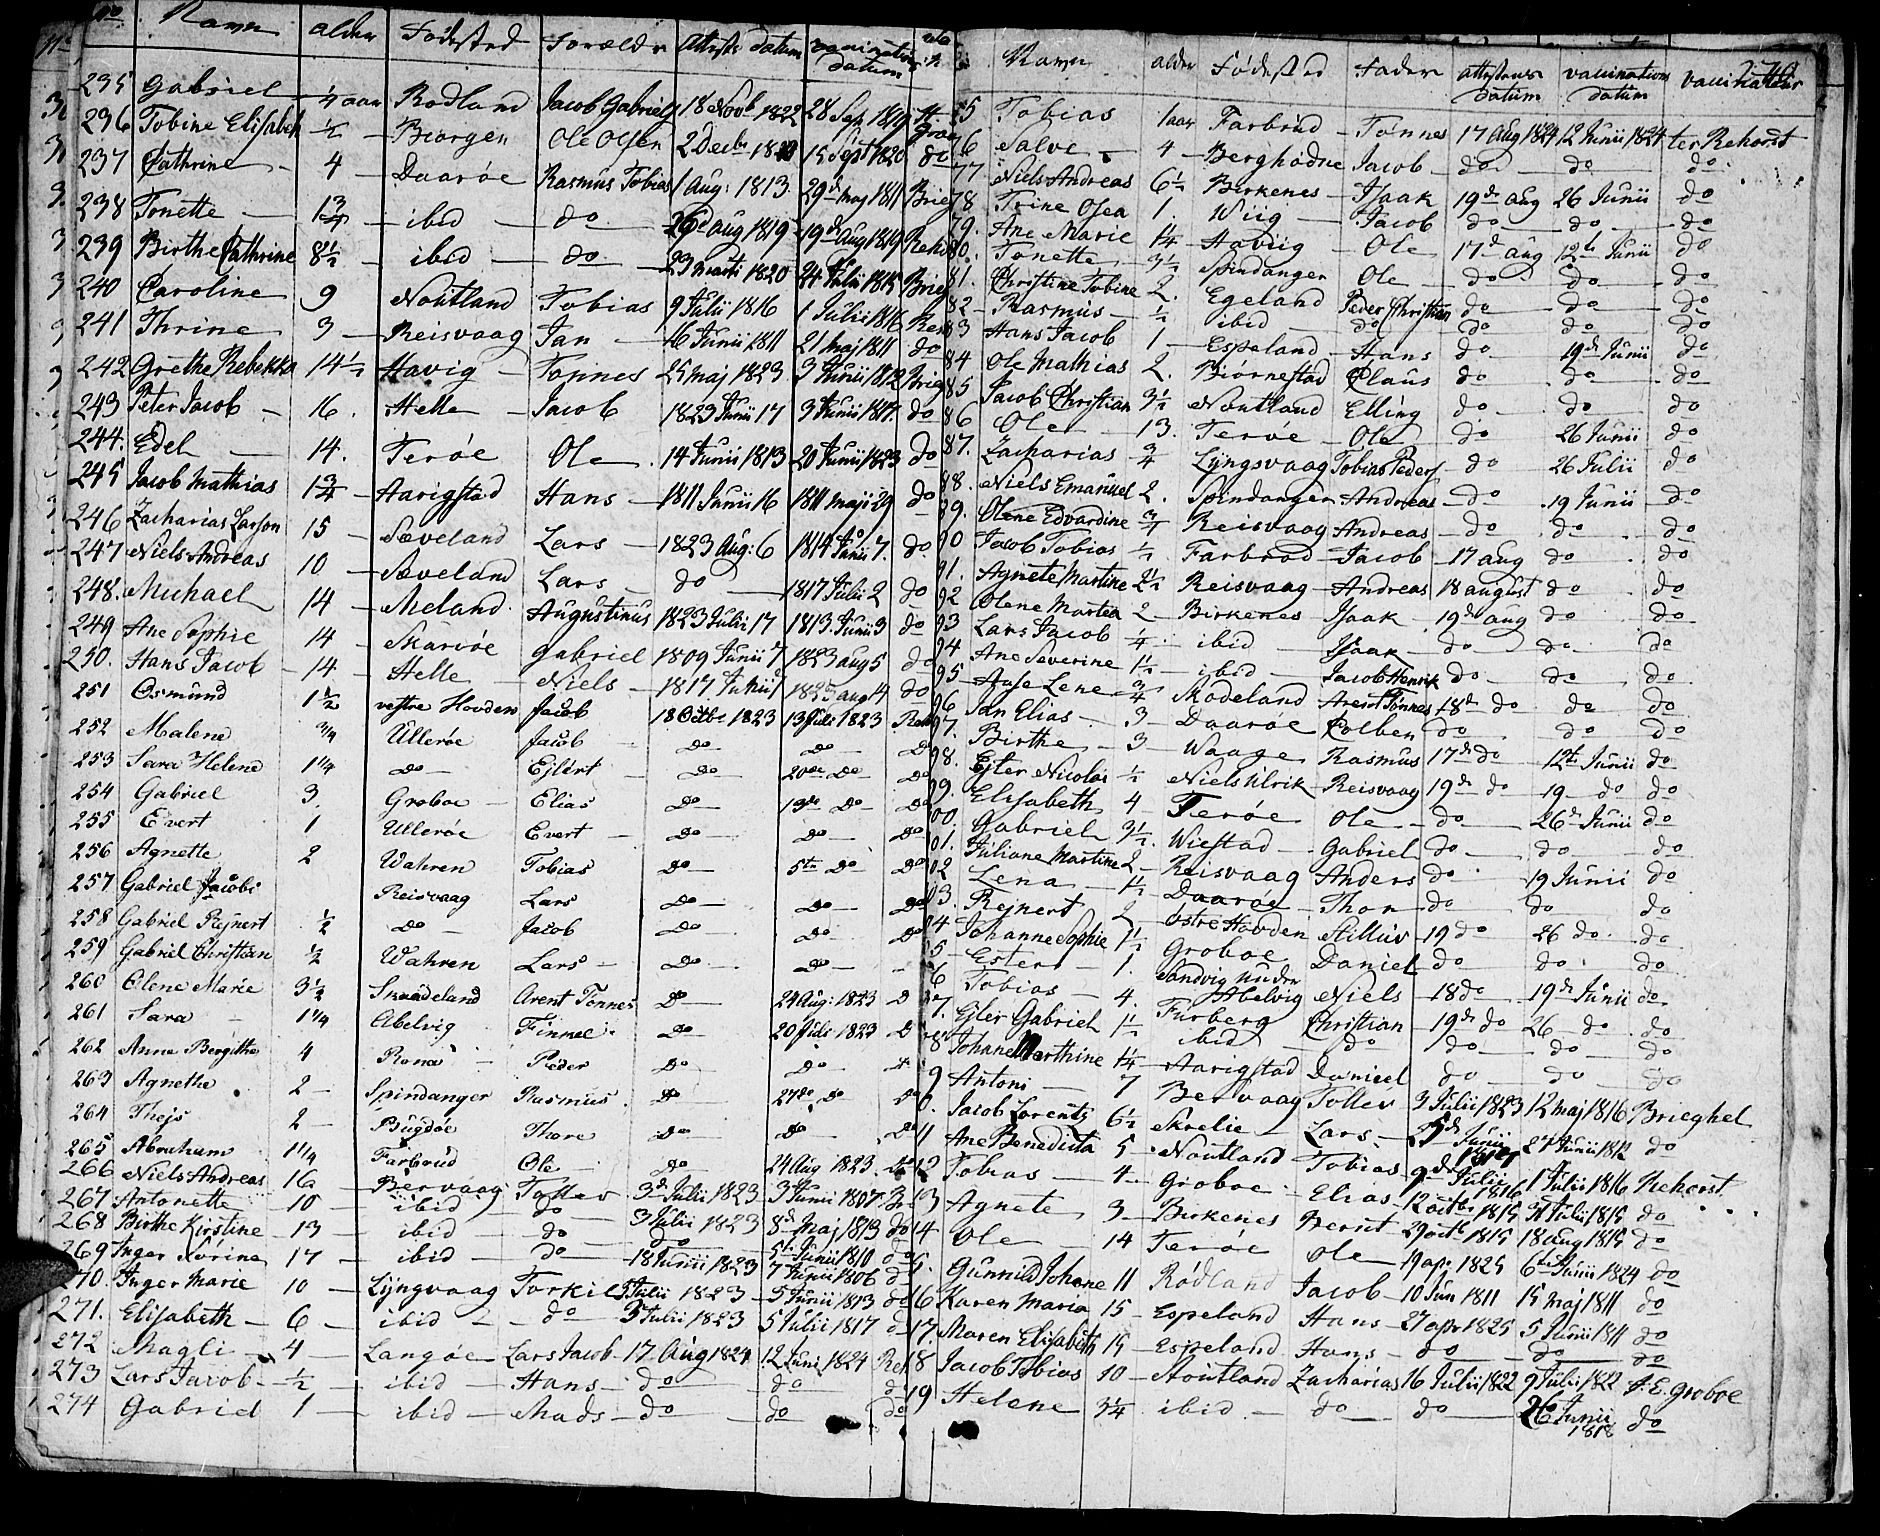 No Navn alder Fødested Forældre Attests datum vaccinations datum
235 Gabriel 1/4 aar Rødland Jacob Gabriels 18 Novb 1822 28 Sep 1819
236 Tobine Elisabeth 1/2 Biørgen Ole Olsen 2 Decbr 15 Sept 1820 do
237 Cathrine 4 Daarøe Rasmus Tobias 1 Aug: 1813 29de maj 1811 Brieg
238 Tonette 1 3/4 ibid do 26de aug 1819 19de Aug 1819 Rehor
239 Birthe Cathrine 8 1/2 ibid do 23 marti 1820 24 Julii 1815 Brieg
240 Caroline 9 Noutland Tobias 9 Julii 1816 1 Julii 1816 Reh
241 Thrine 3 Reisvaag Jan 16 Junii 1811 21 maj 1811 do
242 Grethe Rebekka 14 1/2 Havig Tønnes 25 maj 1823 3 Junii 1812 Brieg
243 Peter Jacob 16 Helle Jacob 1823 Junii 17 3 Junii 1817 do
244. Edel 14. Terøe Ole 14 Junii 1813 20 Junii 1823 do
245 Jacob Mathias 1 3/4 Aarigstad Hans 1811 Junii 16 1811 maji 29 do
246 Zacharias Larson 15 Sæveland Lars 1823 Aug: 6 1814 Junii 7. do
247 Niels Andreas 10 Sæveland Lars do 1817 Julii 2 do
248. Michael 14 Meland Augustinus 1823 Julii 17 1813 Junii 3 do
249 Ane Sophie 14 Skarøe Gabriel 1809 Junii 7 1823 aug 5 do
250. Hans Jacob 14 Helle Niels 1817 Junii 1823 aug 4 do
251 Osmund 1 1/2 vestre Hovden Jacob 18 Octbr 1823 13 Juli 1823 Reh
252 Malene 3/4 Ullerøe Jacob do do do
253 Sara Helene 1 1/4 do Ejlert do 20de do do
254 Gabriel 3. Groboe Elias do 13de do do
255 Evert 1 Ullerøe Evert do do do
256 Agnette 2 Wahren Tobias do 5te do do
257 Gabriel Jacobs Reisvaag Lars do do do
258 Gabriel Rejnert 1/2 do Jacob do do do
259 Gabriel Christian 1/2 Wahren Lars do do
260 Olene Marie 3 1/2 Skaadeland Arent Tønnes do 24 Aug: 1823 d
261 Sara 1 1/4 Abelvig Finnel do 20 Juli 1823 d
262 Anne Bergithe 4 Rona Peder do do
263 Agnethe 2 Spindanger Rasmus do 27de do do
264 Thejs 2 Bugdøe Thore do do do
265 Abraham 1 1/4 Farbrud Ole do 24 Aug 1823
266 Niels Andreas 16 Bervaag Tollev 3de Julii 1823 3 Junii 1807 Br
267 Antonette 10 ibid do 3 Julii 1823 8de Maj 1813 do
268 Birthe Kirstine 13 ibid do do 5te Junii 1810 do
269 Inger Serine 17 ibid do 18 Junii 1823 7 Junii 1806 d
270. Inger Marie 10 Lyngvaag Torkil 3 Julii 1823 5 Junii 1813 do
271. Elisabeth 6 ibid do 3 Julii 1823 5 Julii 1817 d
272 Magli 4 Langøe Lars Jacob 17 Aug 1824 12 Juni 1824 Reh
273 Lars Jacob 1/2 ibid Hans do do d
274 Gabriel 1 ibid Mads do do do
Navn alder Fødested Fader attestens datum vaccinations datum vaccinateur
5 Tobias 1 aar Farbrud Tønnes 17 Aug 1824 12 Junii 1824 ter Rehorst
6 Salve 4 Berghødne Jacob do do do
77 Niels Andreas 6 1/2 Birkenes Isaak 19de aug 26 Junii do
78 Trine Osea 1. Wiig Jacob do do do
79. Ane Marie 1 1/4 Haviig Ole 17de aug 12te Junii do
80. Tonette 3 1/2 Spindanger Ole do do do
81. Christine Tobine 2. Egeland Peder Christian do do do
82 Rasmus 1/2 ibid do do do do
83 Hans Jacob 1 Espeland Hans do 19de Junii do
84 Ole Mathias 2. Biørnestad Claus do do do
85 Jacob Christian 3 1/2 Noutland Elling do do do
86 Ole 13. Terøe Ole do 26 Junii do
87. Zacharias 3/4 Lyngsvaag Tobias Peders do 26 Julii do
88. Niels Emanuel 2. Spindanger Andreas do 19 Junii do
89. Olene Edvardine 3/4 Reisvaag Andreas do do do
90 Jacob Tobias 1/2 Farbrød Jacob 17 aug do do
91. Agnete Martine 2 1/2 Reisvaag Andreas 18 august do do
92 Olene Martea 2 Birkenes Isaak 19de aug do do
93 Lars Jacob 1/4 ibid Isaak do do do
94 Ane Severine 1 1/2 ibid Jacob Henrik do do do
95 Aase Lene 3/4 Skodeland Arent Tønnes 18de do do do
96 Jan Elias 3 Daarøe Colben do do do
97. Birthe 3 Waage Rasmus 17de do 12te Junii do
98. Ejler Nicolai 1/2 Niels Ulrik Reisvaag 19de do 19 do do
99. Elisabeth 4 Terøe Ole do 26de Junii do
00. Gabriel 3 1/2 Wiestad Gabriel do do do
01. Juliane Martine 2 Reisvaag Anders do 19 Junii do
02 Lena 1 1/2 Daarøe Thor do do do
03. Rejnert 2 Østre Hovden Nilluv 19 do 26 do do
04 Johanne Sophie 1 1/2 Groboe Daniel do do do
5 Ester 1. Sandvig under Abelvig Niels 18 do 19de Junii do
6 Tobias 4. Furberg Christian 19de do 26 do do
7. Ejler Gabriel 1 1/2 ibid do do do do
8 Johane Marthine 1 1/4 Aarigstad Daniel do do do
9 Antoni 7 Bervaag Tollev 3 Julii 1823 12 maj 1816 Brieghel
0. Jacob Lorentz 6 1/2 Skrelie Lars 25de Junii 27 Junii 1812 do
11 Ane Benedicta 5 Noutland Tobias 9de Julii 1816 1 Julii 1816 Rehorst
12 Tobias 4 Groboe Elias 12 octbr 1815 31 Julii 1815 do
13 Agnete 3 Birkenes Berut 29 octb 1815 18 aug 1815 do
14 Ole 14 Terøe Ole 19 apr 1825 6te Junii 1824 do
5. Gunnild Johane 11 Rødland Jacob 10 Jun 1811 15 maj 1811 do
16 Karen Maria 15 Espeland Hans 27 apr 1825 5 Junii 1811 do
17. Maren Elisabeth 15 Espeland Hans do do do
18 Jacob Tobias 10 Noutland Zacharias 16 Julii 1822 9 Julii 1822 J. E. Groboe
19 Helene 3 1/4 ibid do do 26 Junii 1818 do